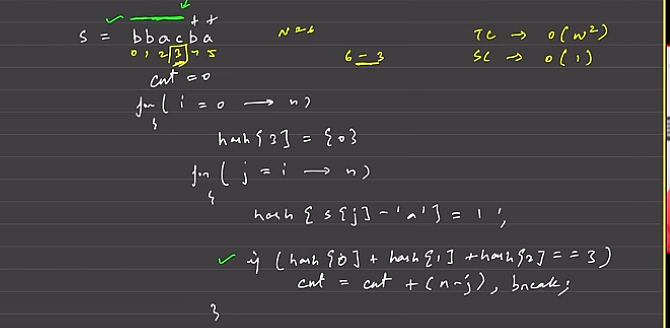 s = bbacba
0 1 2 3 4 5
N=6
6-3
TC → O(N²)
SC → O(1)
cnt = 0
for( i = 0 → n)
{
hash[3] = {0}
for( j = i → n)
{
hash[s[j]-'a'] = 1;
if (hash[0] + hash[1] + hash[2] == 3)
cnt = cnt + (n-j), break;
}